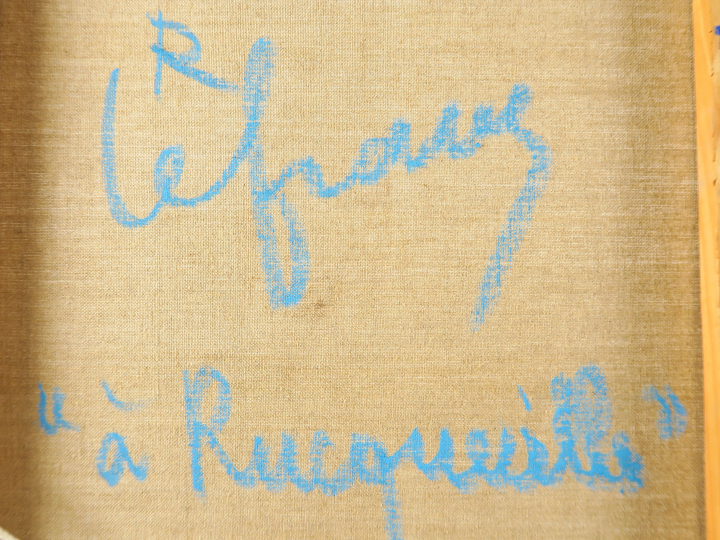 R Lefranc
"à Rucqueville"